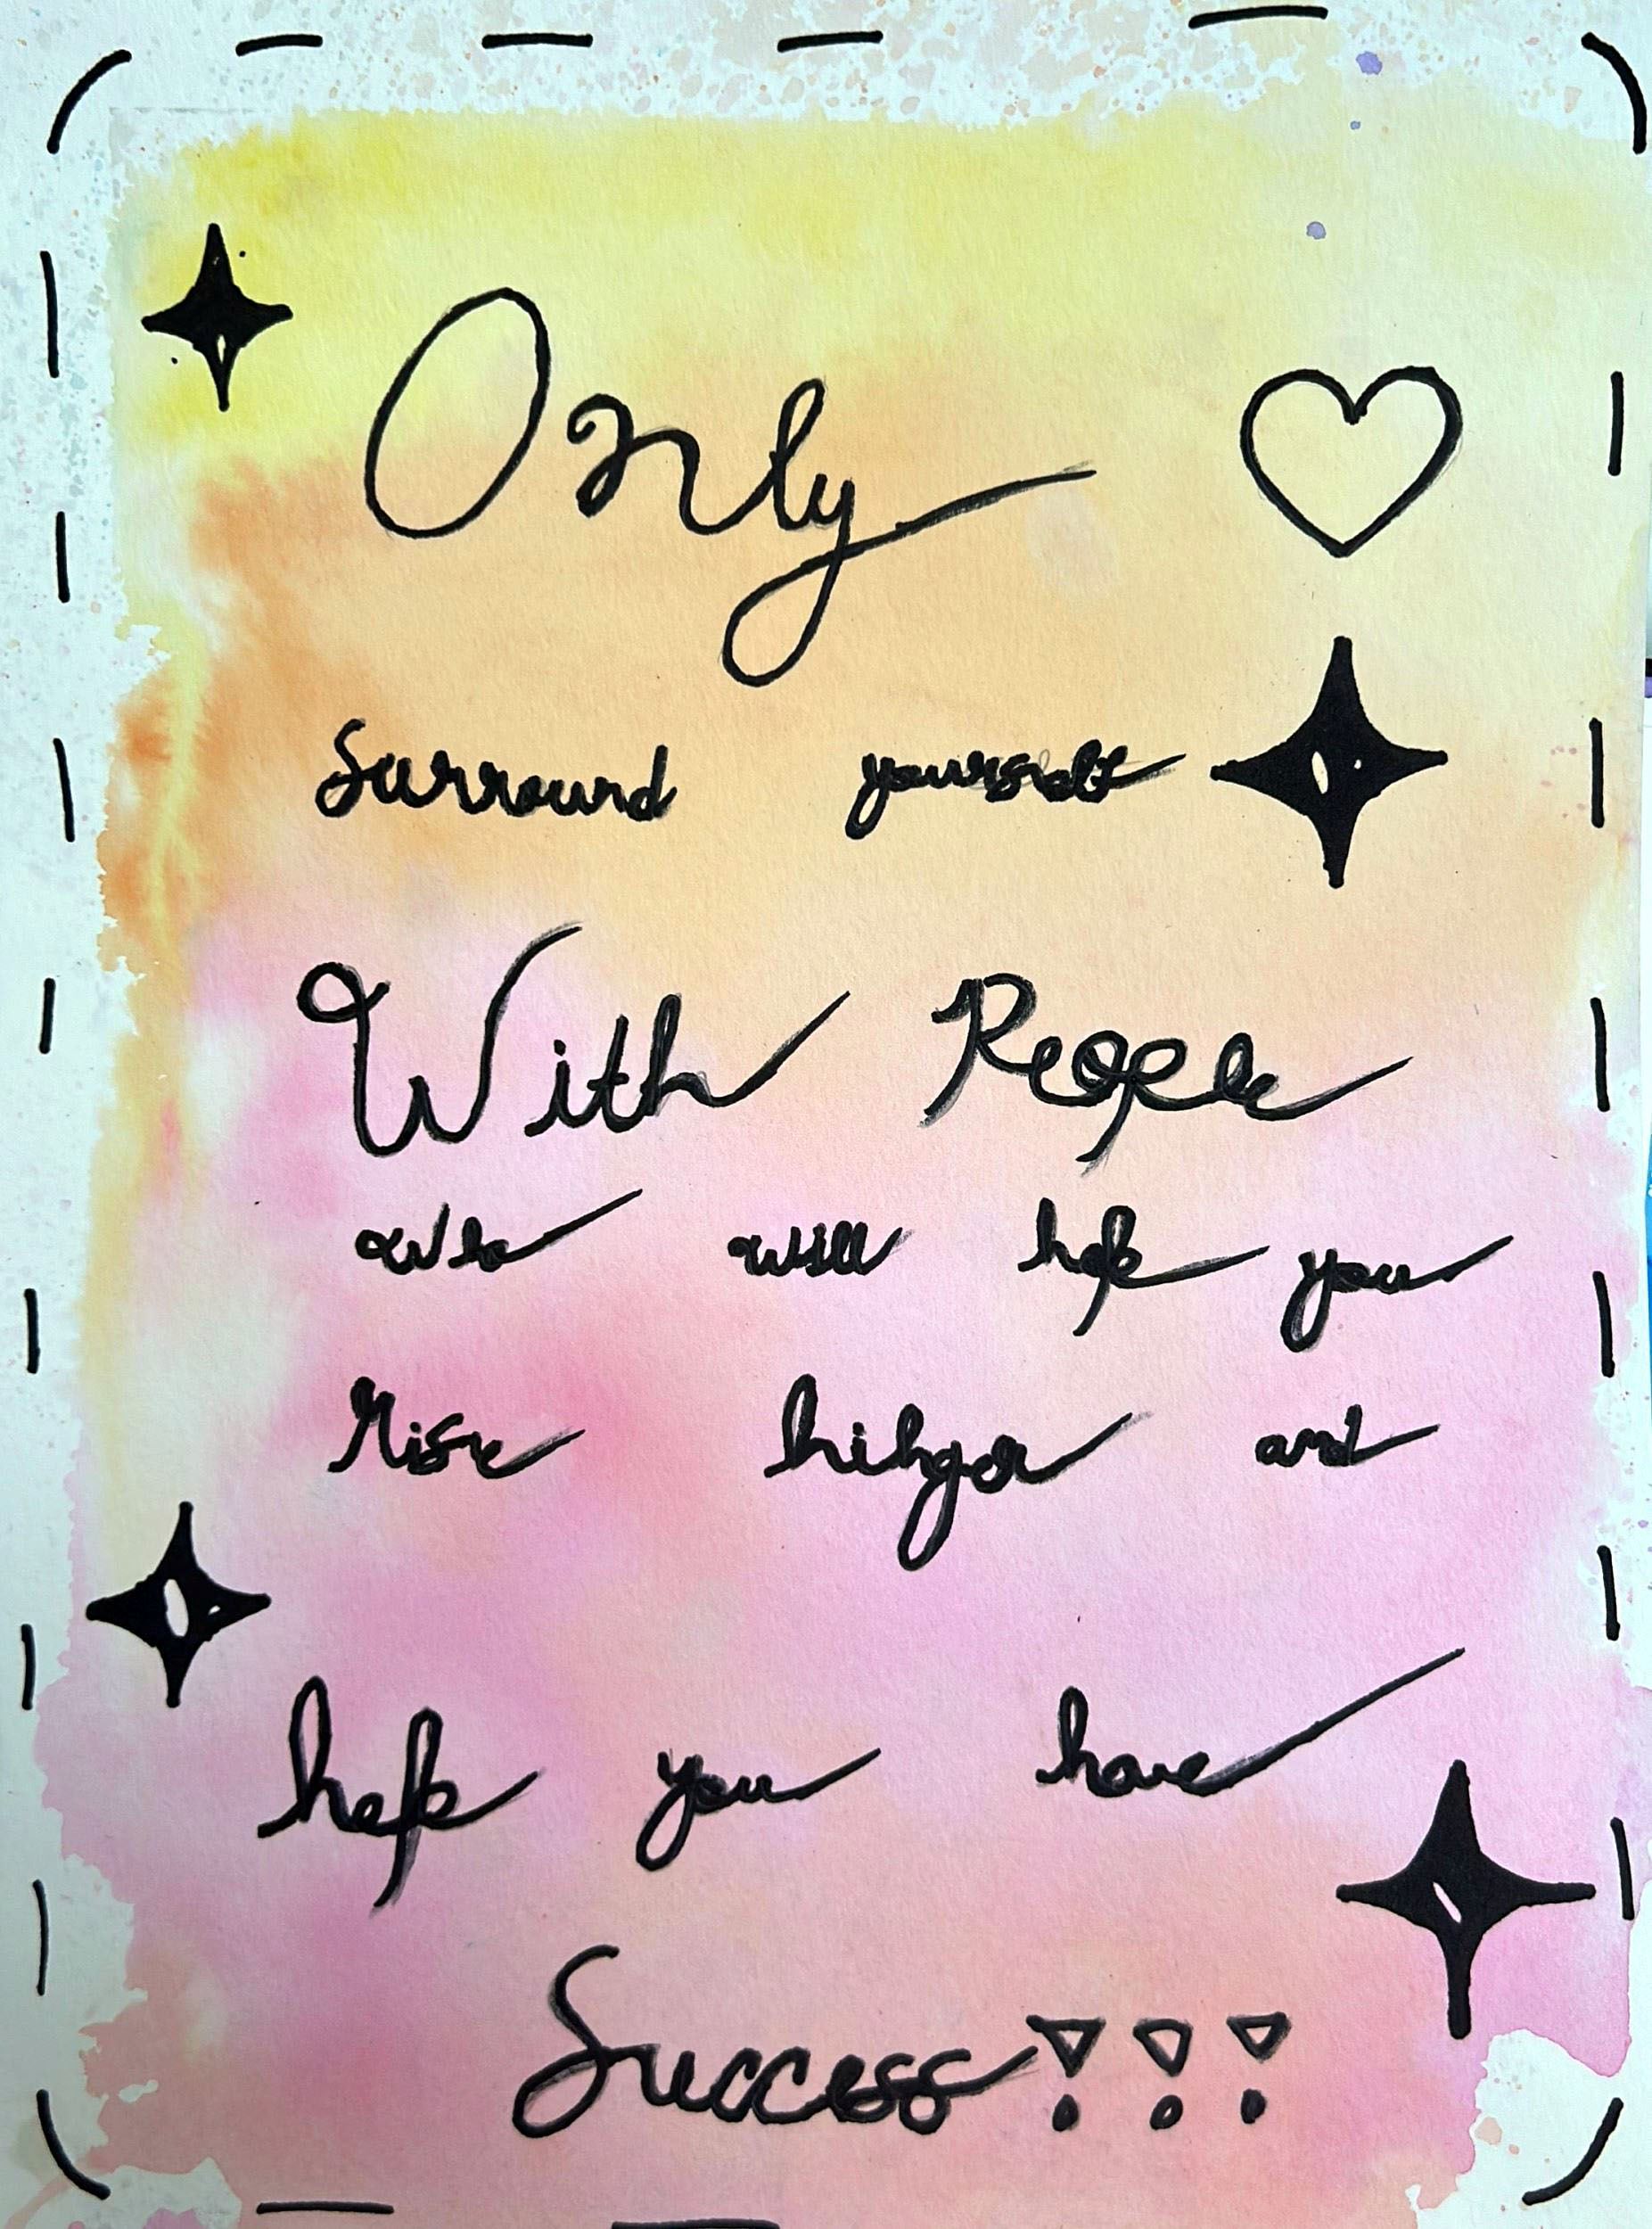 Only
Surround yourself
With People
who will help you
Rise hihger and
help you have
Success!!!